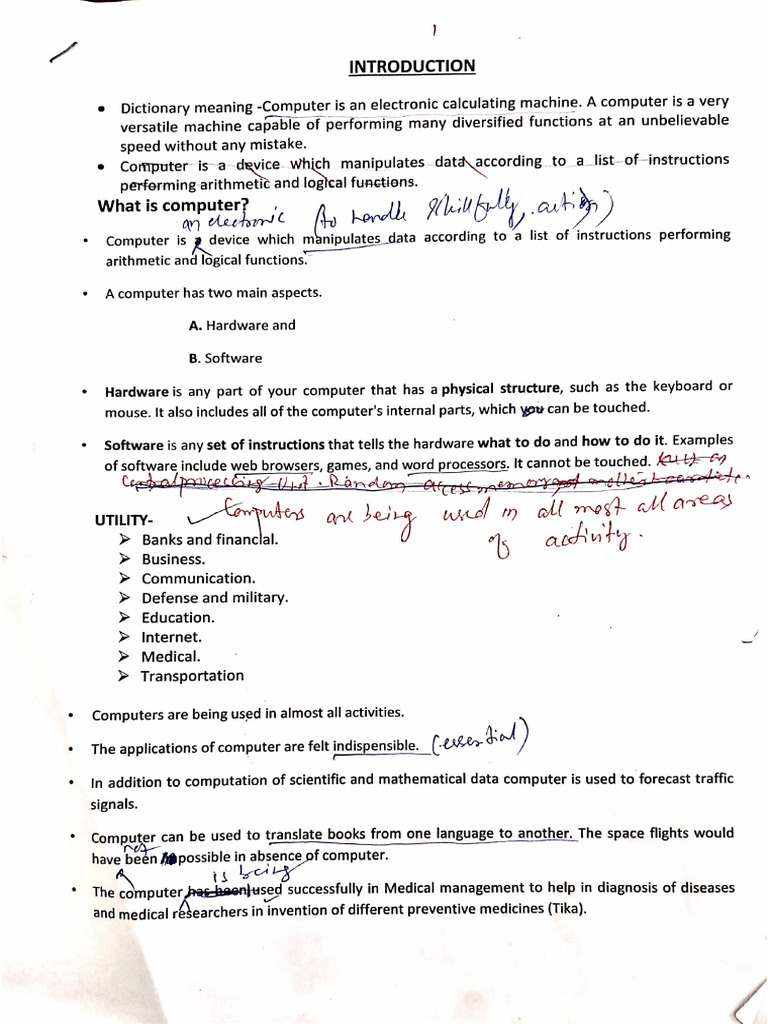 1
INTRODUCTION
• Dictionary meaning -Computer is an electronic calculating machine. A computer is a very
versatile machine capable of performing many diversified functions at an unbelievable
speed without any mistake.
• Computer is a device which manipulates data according to a list of instructions
performing arithmetic and logical functions.
What is computer?
an electronic (to handle skillfully, action)
• Computer is a device which manipulates data according to a list of instructions performing
arithmetic and logical functions.
• A computer has two main aspects.
A. Hardware and
B. Software
• Hardware is any part of your computer that has a physical structure, such as the keyboard or
mouse. It also includes all of the computer's internal parts, which you can be touched.
• Software is any set of instructions that tells the hardware what to do and how to do it. Examples
of software include web browsers, games, and word processors. It cannot be touched. such as
Central processing Unit. Random access memory and motherboard etc.
UTILITY- Computers are being used in all most all areas
of activity.
➢ Banks and financial.
➢ Business.
➢ Communication.
➢ Defense and military.
➢ Education.
➢ Internet.
➢ Medical.
➢ Transportation
• Computers are being used in almost all activities.
• The applications of computer are felt indispensible. (essential)
• In addition to computation of scientific and mathematical data computer is used to forecast traffic
signals.
• Computer can be used to translate books from one language to another. The space flights would
not
have been possible in absence of computer.
is being
• The computer has been used successfully in Medical management to help in diagnosis of diseases
and medical researchers in invention of different preventive medicines (Tika).